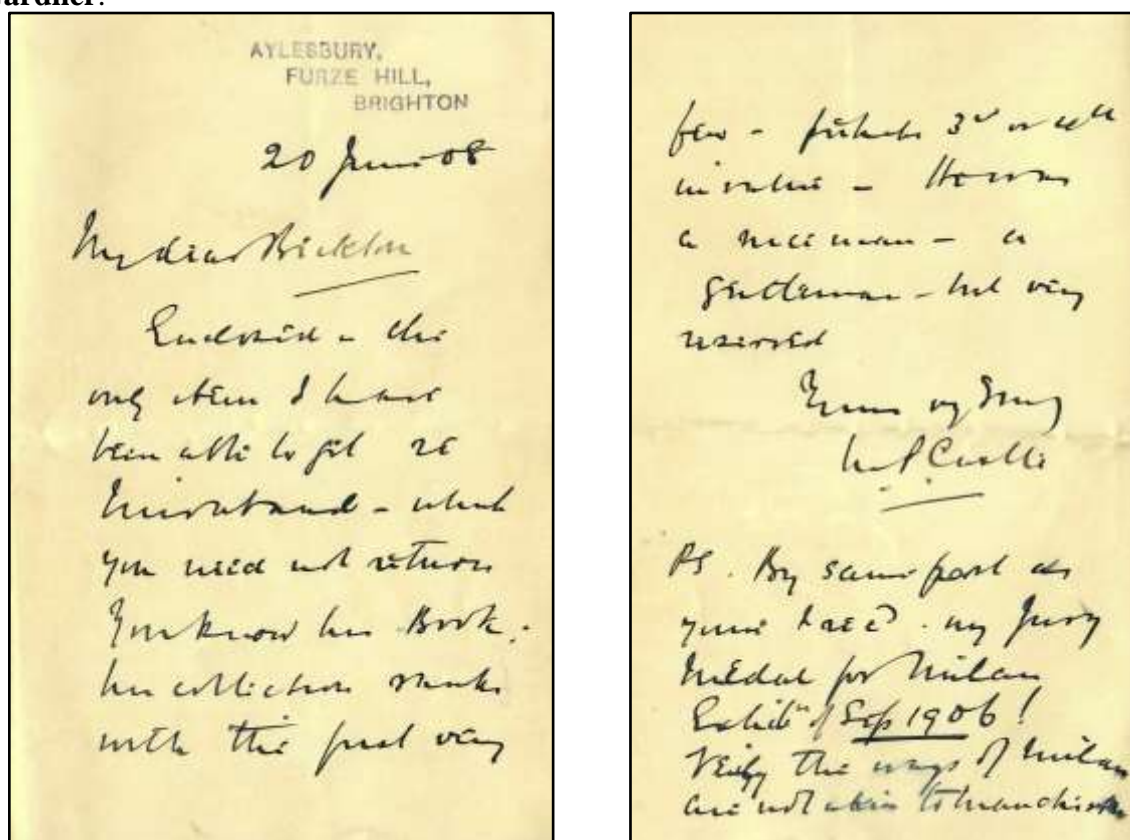 ardner.
AYLESBURY,
FURZE HILL,
BRIGHTON
20 June 08
My dear Bickton
Enclosed – the
only item I have
been able to get re
Mirabaud – which
you need not return
You know his Book;
his collection ranks
with the first very
few – perhaps 3d or 4th
in value – He was
a nice man – a
gentleman – but very
reserved
Yours vy truly
M.P. Castle
PS. By same post as
yours I rec'd my Jury
Medal for Milan
Exhibn of Sep 1906!
Verily the ways of Milan
are not akin to Manchester